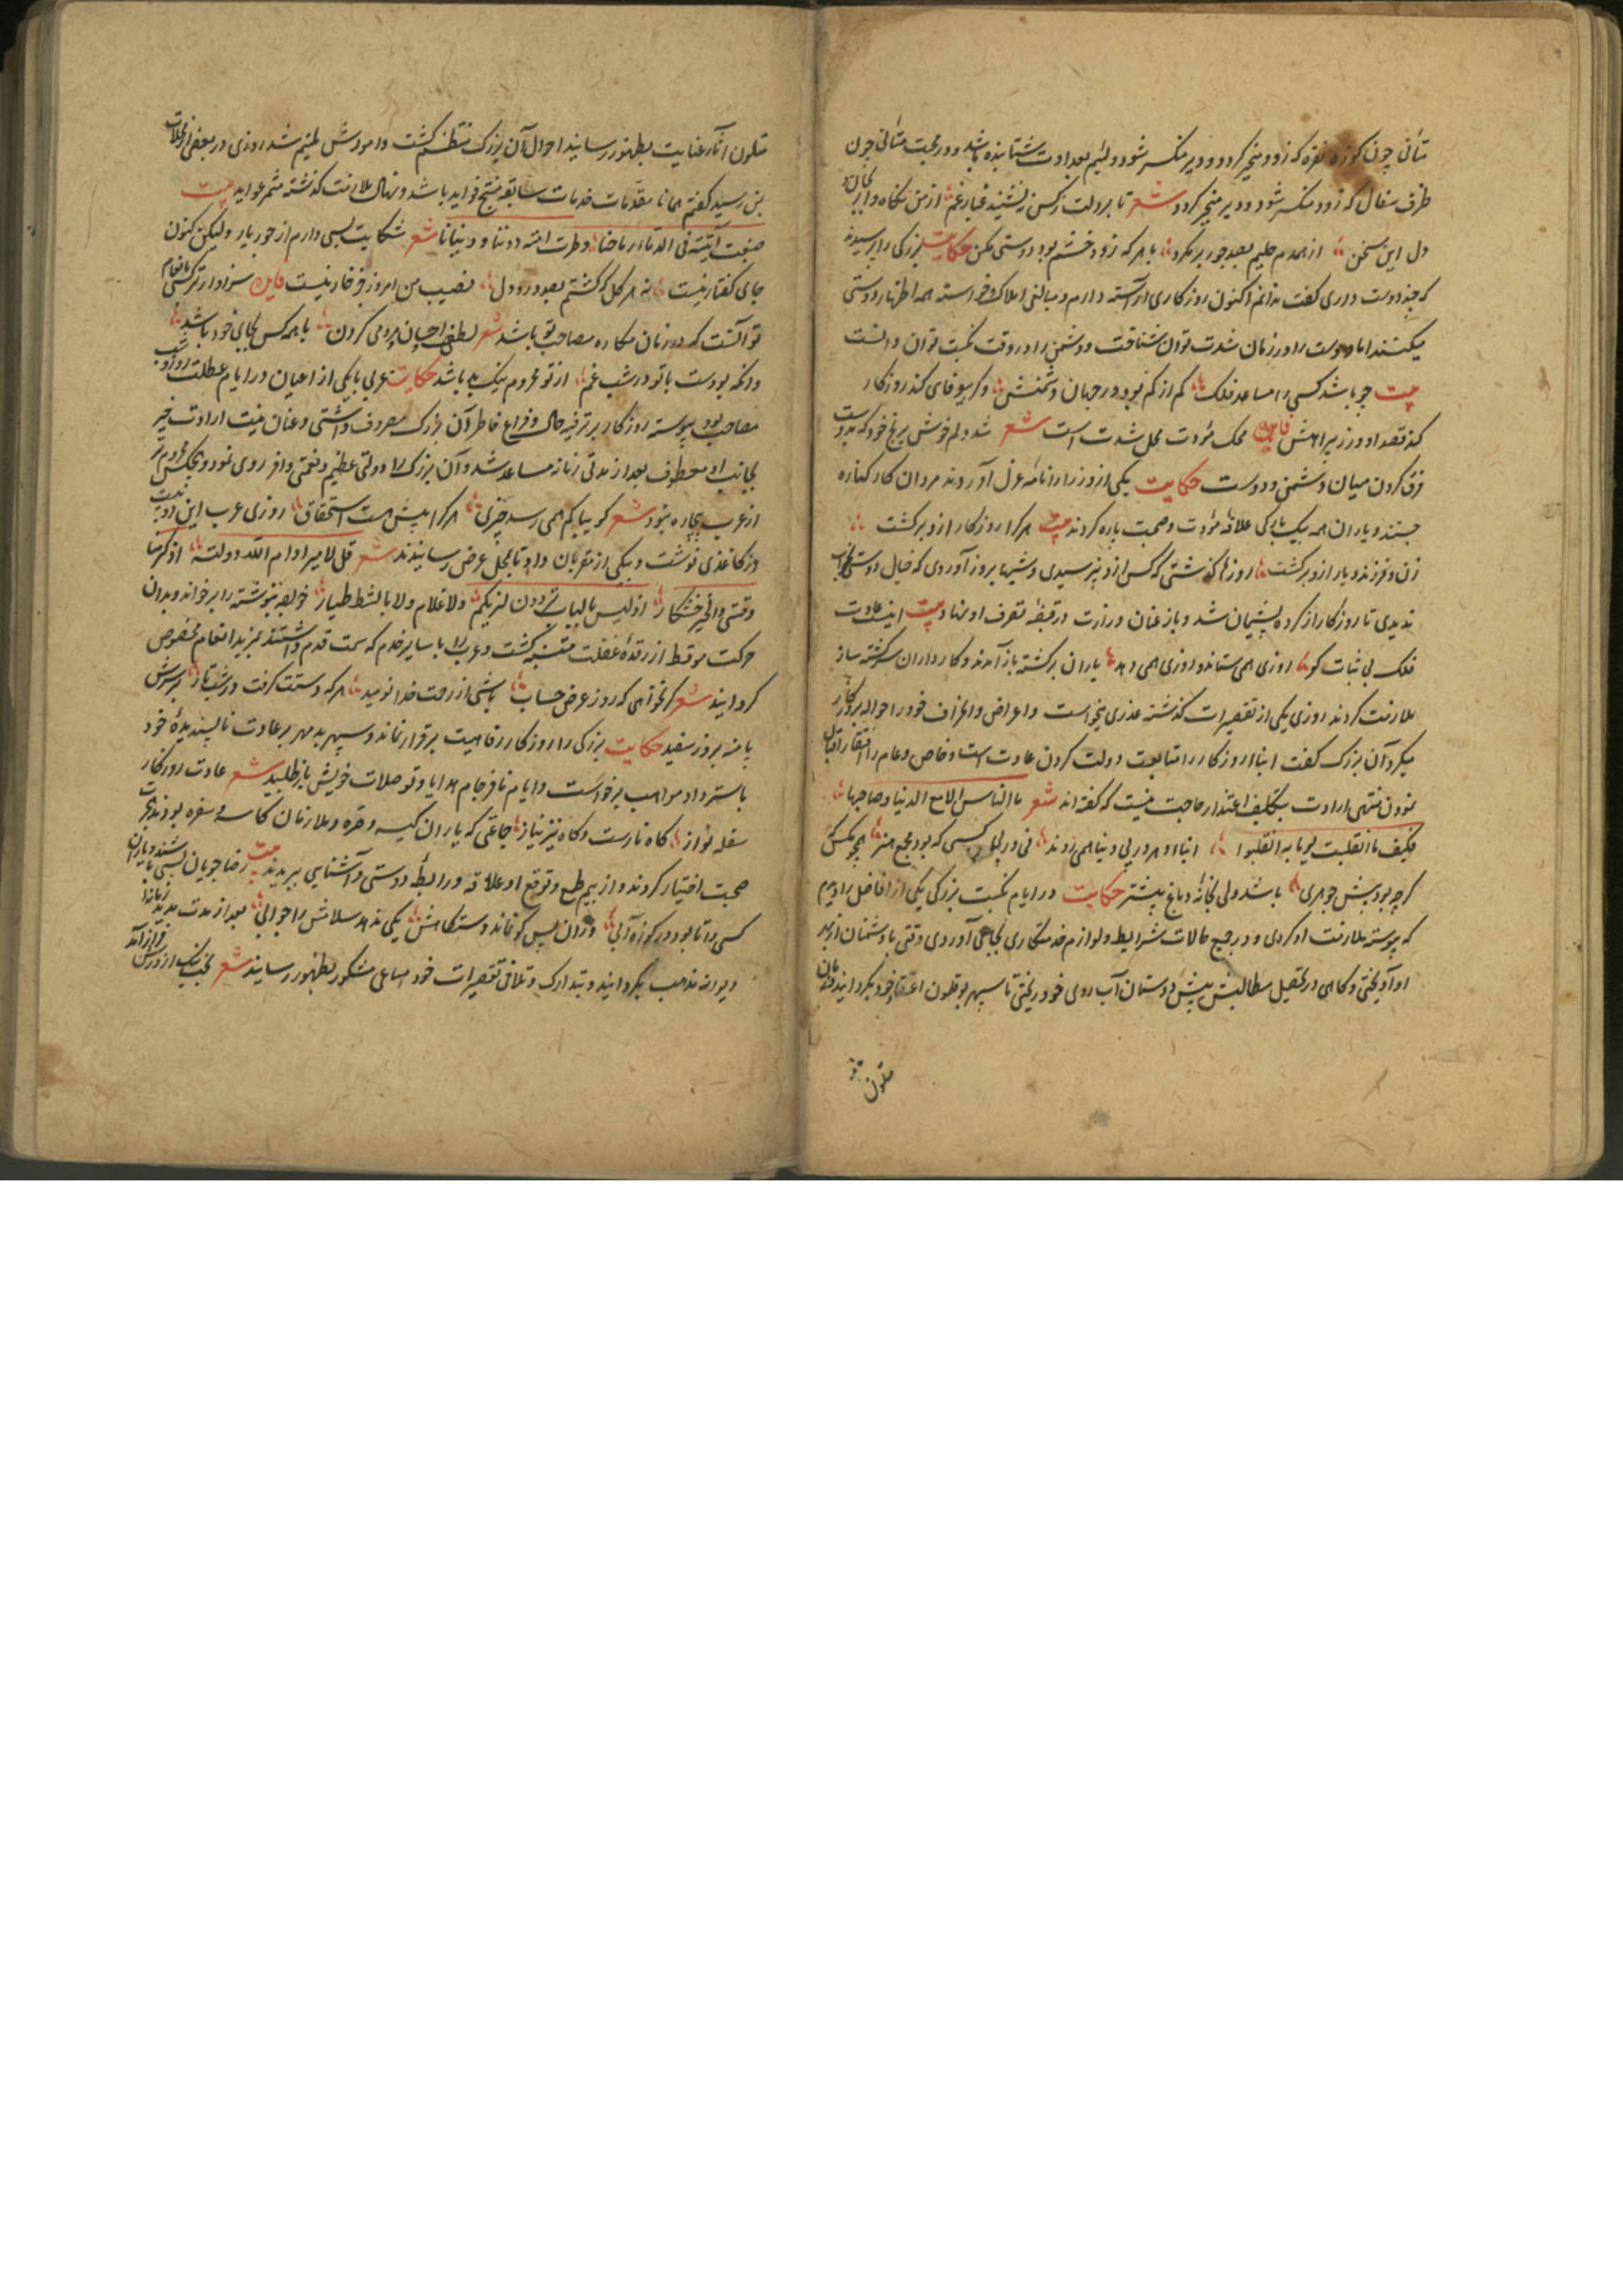 متأنی چون کوزه نقره که زود منجبر گردد و دیر منکسر شود و لئیم بعداوت شتابنده باشد و در محبت متأنی چون
ظرف سفال که زود منکسر شود و دیر منجبر گردد شعر تا بر دلت ز کس ننشیند غبار غم از من نگاه دار
دل این سخن از همدم حلیم بصد جور بر مگرد با هر که زود خشم بود دوستی مکن حکایت بزرگی را پرسیدند
که چند دوست داری گفت ندانم اکنون روزگاری آراسته دارم و مالی املاک و خواسته همه اظهار دوستی
میکنند اما دوست را در زمان شدت توان شناخت و دشمن را در وقت نکبت توان دانست
بیت چو باشد کسی را مساعد فلک کم از کم بود در جهان دشمنش وگر بیوفای کند روزگار
کند قصد او در زیر پیراهنش فایده محک مودت محل شدت است شعر شد دلم خوش برنج خود که
فرق کردن میان دشمن و دوست حکایت یکی از وزرا را نامه عزل آوردند مردان کار کناره
جستند و یاران همه بیکبارکی علاقه مودت و صحبت پاره کردند بیت هر کرا روزگار ازو برگشت
زن و فرزند و یار ازو برگشت روزها گذشتی که کس ازو نپرسیدی و شبها بروز آوردی که خیال دوستی بخواب
ندیدی تا روزگار از کرده پشیمان شد و باز عنان وزارت در قبضه تصرف او نهاد بیت اینست عادت
فلک بی ثبات کو روزی همی ستاند و روزی همی دهد یاران برگشته باز آمدند و کارداران سرگشته ساز
ملازمت کردند روزی یکی از تقصیرات گذشته عذری میخواست و اعراض و انحراف خود را حواله بروزگار
میکرد آن بزرگ گفت ابناء روزگار را متابعت دولت کردن عادت است و خاص و عام را افتقار اقبال
نمودن منتهی ارادت بتکلیف اعتذار حاجت نیست که گفته اند شعر ما الناس الا مع الدنیا و صاحبها
فکیف ما انقلبت یوما به انقلبوا ابناء دهر در پی دنیا همی روند نی در پی کسی که بود مجمع هنر همچو مگس که
گرچه بود پیش جوهری باشد ولی بخانه دباغ بیشتر حکایت در ایام نکبت بزرگی یکی از افاضل را دیدم
که پیوسته ملازمت او کردی و در جمیع حالات شرایط و لوازم خدمتکاری بجای آوردی وقتی با دشمنان از بهر
او آویختی و گاهی در تحصیل مطالبش پیش دوستان آب روی خود ریختی تا سپهر بوقلمون اعتقاد خود بگردانید و زمان
متلون
متلون آثار عنایت بظهور رسانید احوال آن بزرگ منتظم گشت و امورش ملتیم شد روزی در بعضی از محلات
بمن رسید گفتم همانا مقدمات خدمات سابقه منتج فواید باشد و نهال ملازمت گذشته مثمر عواید بیت
شعر شکایت بسی دارم از جور یار ولیکن کنون
جای گفتار نیست نه هر گل که گشتم بصد درد دل نصیب من امروز جز خار نیست فایده سزاوارتر کسی بانعام
تو آنست که در زمان مکاره مصاحب تو باشد شعر لطف و احسان و مردمی کردن با همه کس بجای خود باشد
وانکه بودست با تو در شب غم از تو محروم نیک بد باشد حکایت عربی با یکی از اعیان در ایام عطلت روز و شب
مصاحب بود پیوسته روزگار بر ترفیه حال و فراغ خاطر آن بزرگ مصروف داشتی و عنان نیت ارادت خیر
بجانب او معطوف بعد از مدتی زمانه مساعد شد و آن بزرگ را دولتی عظیم و نعمتی وافر روی نمود و هیچکس محروم تر
از عرب بیچاره نبود شعر گوییا کم همی رسد چیزی هر کرا بیش هست استحقاق روزی عرب این دو بیت
در کاغذی نوشت و بیکی از مقربان داد تا بمحل عرض رسانیدند شعر قل للامیر ادام الله دولته اذکرنا
وقتی والخبز خشکار اذ لیس بالباب برذون لنزیکم ولا غلام ولا بالشط طیار خواجه نبوشته را برخواند و بدان
حرکت موقظ از رقده غفلت متنبه گشت و عرب را با سایر خدم که سمت قدم داشتند بمزید انعام مخصوص
گردانید شعر گر نخواهی که روز عرض حساب باشی از رحمت خدا نومید هر که دستت گرفت در شب تار برسرش
پا منه بروز سفید حکایت بزرگی را روزگار رفاهیت برقرار نماند و سپهر بد مهر بر عادت ناپسندیده خود
باسترداد مواهب برخواست و ایام نافرجام هدایا و توصلات خویش باز طلبید شعر عادت روزگار
سفله نواز گاه نازست و گاه نیز نیاز جماعتی که یاران کیسه و قره و ملازمان کاسه و سفره بودند
صحبت اختیار کردند و از بیم طمع و توقع او علاقه و رابطه دوستی و آشنایی ببریدند بیت رضا جویان بسی باشند و یاران
کسی را تا بود در کوزه آبی وزان پس کو نماند دستگاهش یکی ندهد سلامش را جوابی بعد از مدت مدید زمانه
دیوانه مذهب بگردانید و بتدارک و تلافی تقصیرات خود مساعی مشکور بظهور رسانید شعر بخت نیک از درش فراز آمد